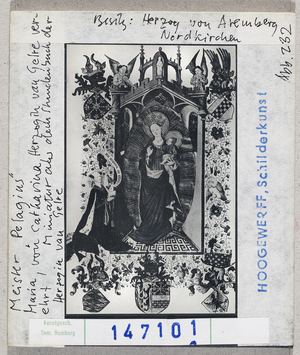 Besitz: Herzog von Aremberg
Nordkirchen
Meister Pelagius
Maria, von Catharina Herzogin van Gelre ver-
ehrt, Miniatur aus dem Stundenbuch der
Herzogin van Gelre
HOOGEWERFF, Schilderkunst
Kunstgesch.
Sem. Hamburg
147101